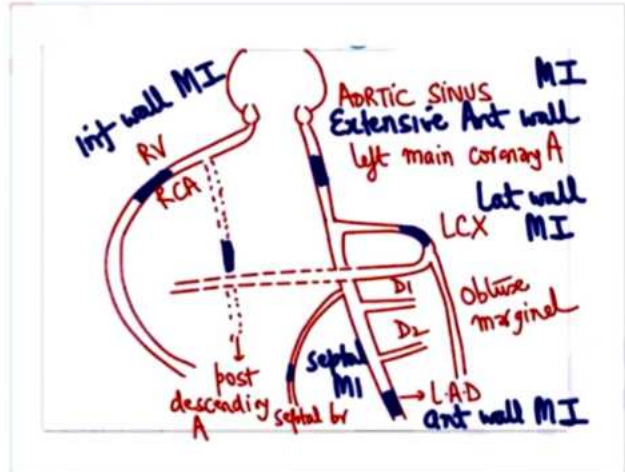 inf wall MI
RV
RCA
AORTIC SINUS
MI
Extensive Ant wall
left main coronary A
Lat wall
MI
LCX
D1
D2
Obtuse
marginel
septal
MI
post
descending
A
septal br
→ L.A.D
ant wall MI